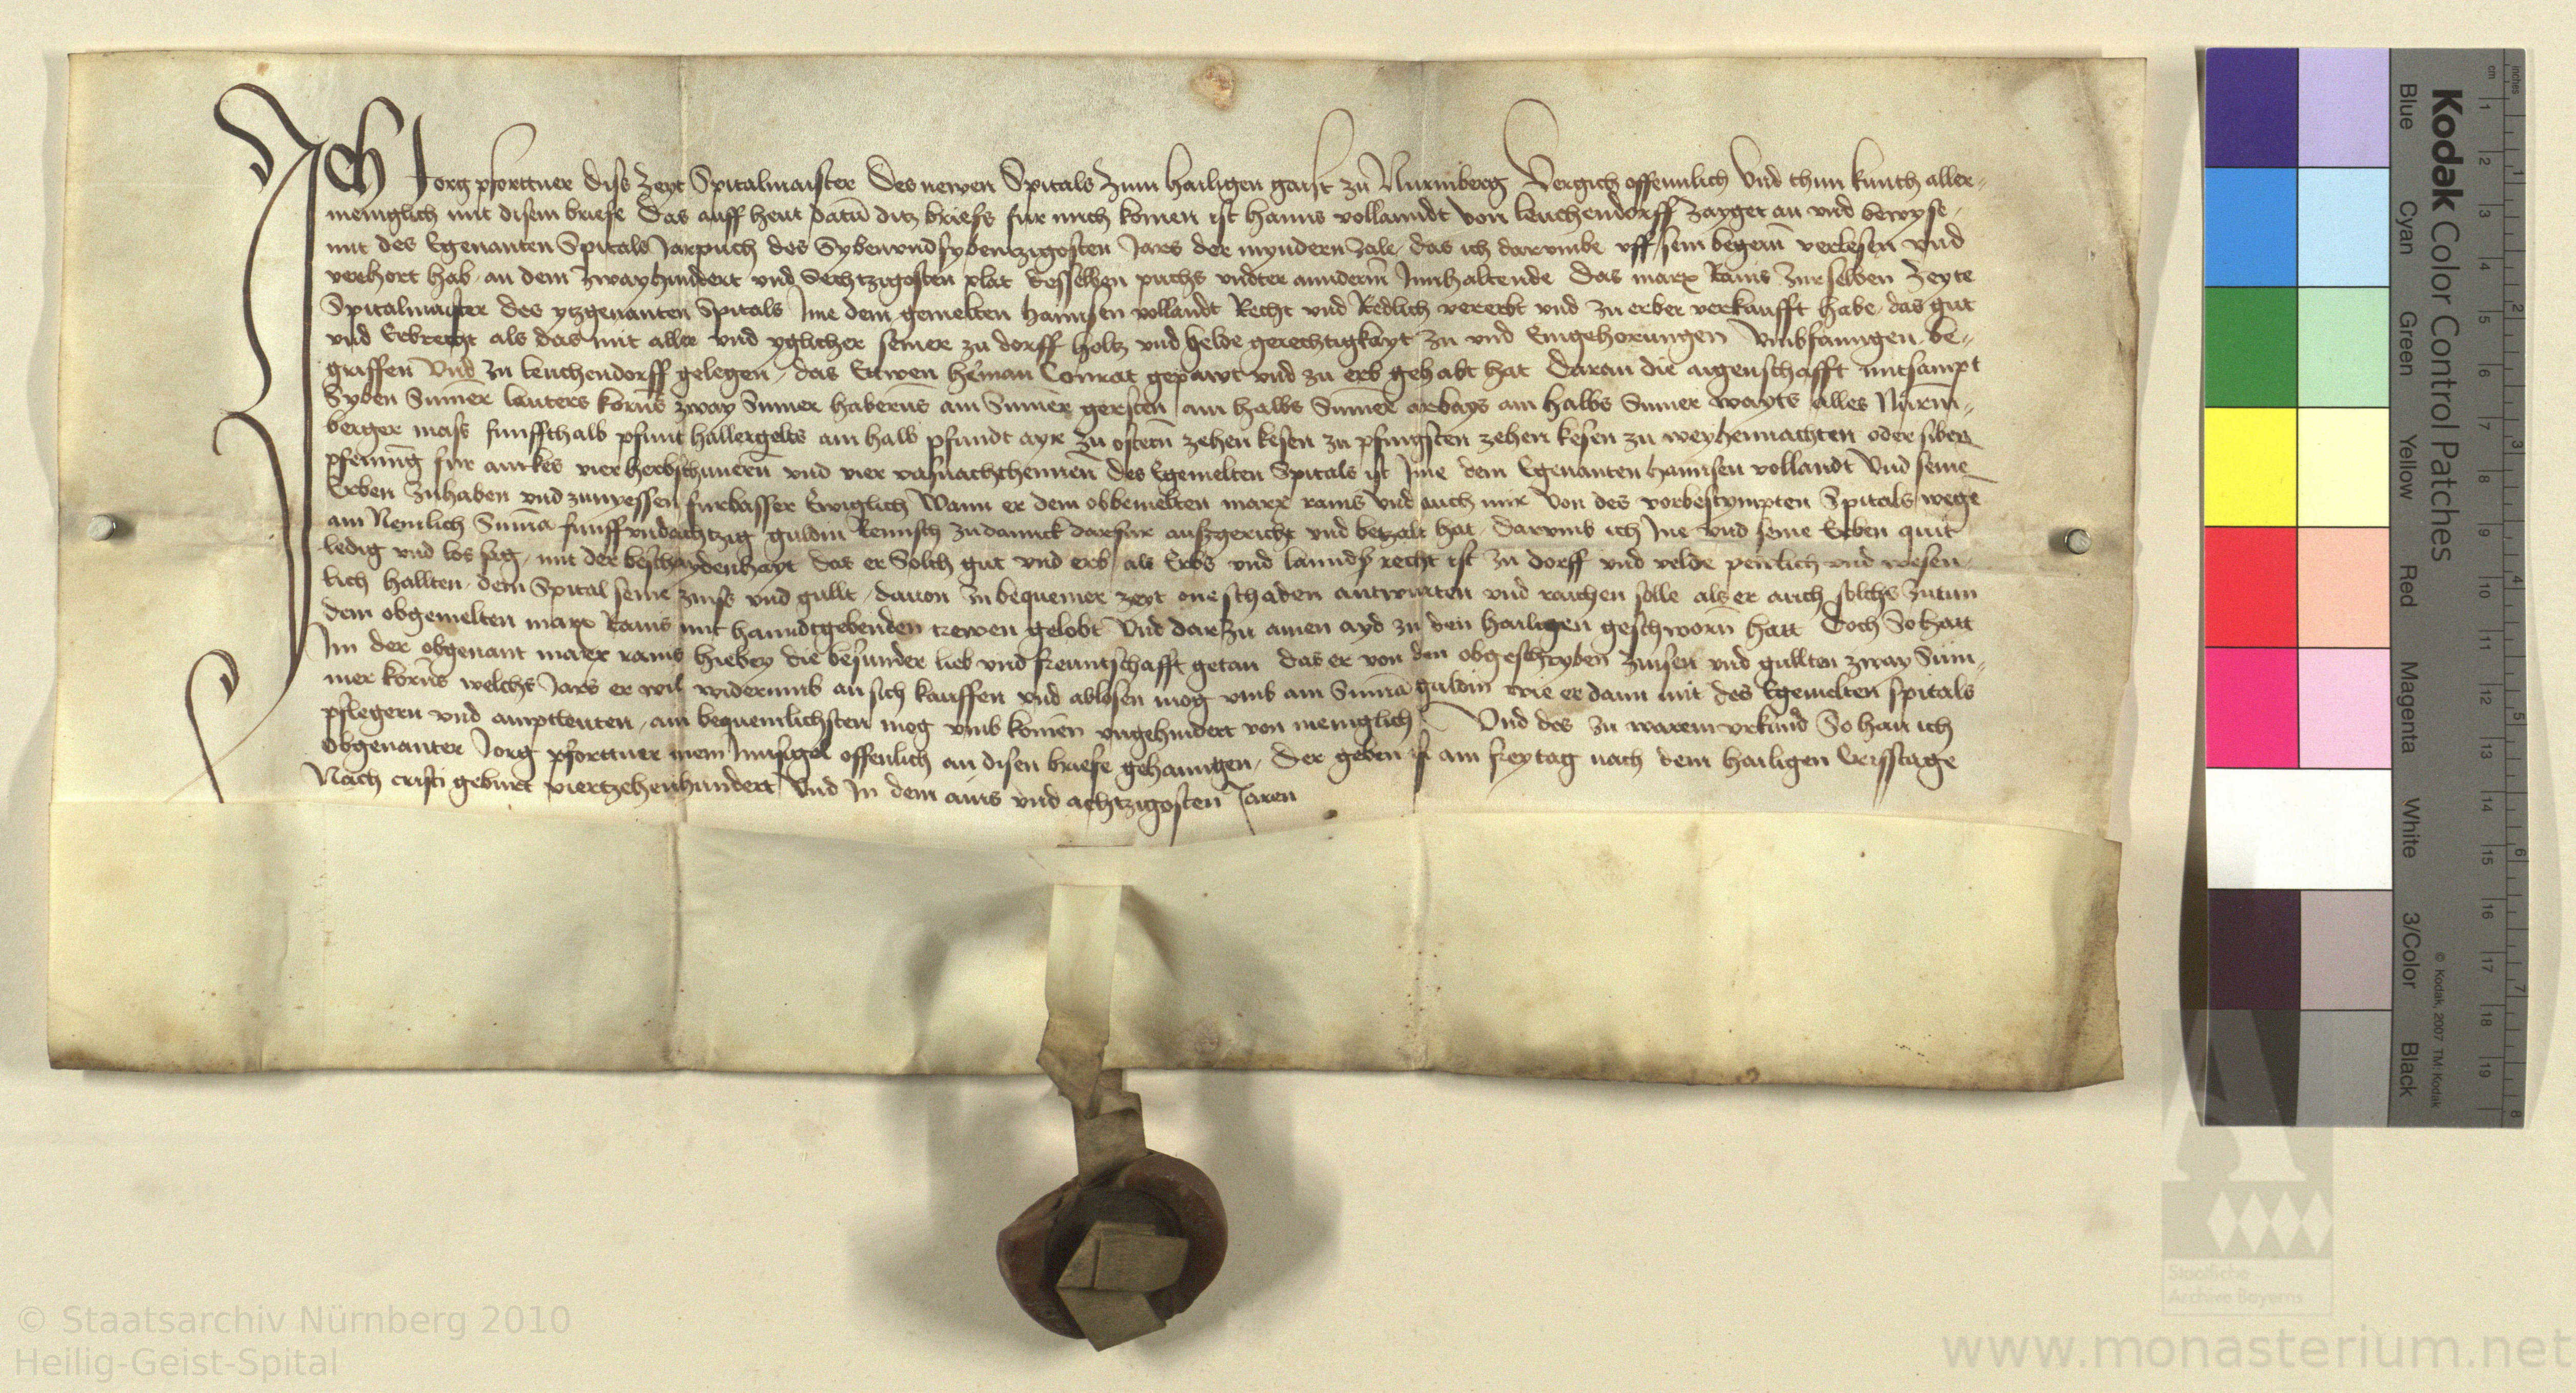 Ich Jorg pforttner diss zeyt Spitalmaister des newen Spitals zum hailigen gaist zu Nurmberg Vergich offennlich Vnd thun kunth aller-
meniglich mit disem briefe Das auff heut datū ditz briefs fur mich komen ist hanns vollanndt von leuchendorff zayget an vnd bewyse
mit des Egenanten Spitals Jarpuch des Sybenvndsybentzigosten Jars der myndern zale, das ich darvmbe vff sein begern verlesen vnd
verhort hab, an dem zwayhundert vnd Sechtzigosten plat desselben puchs vndter annderm Innhaltende Das marx Rams zur selben zeyte
Spitalmaister des ytzgenanten Spitals Ime dem gemelten hannsen vollandt Recht vnd Redlich vererbt vnd zu erber verkaufft habe, das gut
vnd Erbrecht als das mit aller vnd yglicher seiner zu dorff holtz vnd helde gerechtigkayt zu vnd Eingehorungen Vmbfanngen, be-
griffen Vnd zu leuchendorff gelegen, das Ettwen herman Conrat gepawt vnd zu erb gehabt hat Daran die aigenschafft mitsampt
Syben Sumer lauters korns zway Sumer haberns ain Sumer gersten ain halbs Sumer arbays ain halbs Sumer wayts alles Nurm-
berger mess funffthalb pfunt hallergelts ain halb pfundt ayr zu ostern zehen kesen zu pfingsten zehen kesen zu weyhennachten oder siben
pfening fur ain kes vier herbsthunern vnd vier vasnachthennen des Egemelten Spitals ist Ime dem Egenanten hannsen vollandt Vnd seine
Erben zuhaben vnd zunyessen furbasser Ewiglich Wann er dem obbemelten marx rams vnd auch mir von des vorbestympten Spitals wege
ain Nemlich Suma funffvndachtzig guldin Reinisch zudannck darfur aussgericht vnd betzalt hat, darvmb ich Ine vnd seine Erben quit
ledig vnd los sag, mit der beschaydenhayt das er Solch gut vnd erb als Erbs vnd lannds recht ist zu dorff vnd velde pewlich vnd wesen-
lich hallten, dem Spital seine zinss vnd gullt, dauon zu bequemer zeyt one schaden antwurten vnd raichen solle als er auch solchs zutun
dem obgemelten marx Rams mit hanndtgebenden trewen gelobt Vnd darzu ainen ayd zu den hailigen geschworn hatt Doch So hatt
Im der obgenant marx rams hiebey die besunder lieb vnd freuntschafft getan das er von den obgeschryben zinsen vnd gullten zway Sum-
mer korns welchs Jars er wil widerumb an sich kauffen vnd ablosen mog vmb ain Suma guldin wie er dann mit des Egemelten spitals
pflegern vnd amptleuten, am bequemlichsten mog vmb komen vngehindert von meniglich Vnd des zu warem vrkund So han ich
obgenanter Jorg pforttner mein Innsigel offenlich an disen briefe gehanngen, Der geben ist am freytag nach dem hailigen Cristtage
Nach cristi geburt viertzehenhundert Vnd In dem ains vnd achtzigosten Jaren
Kodak Color Control Patches
Blue Cyan Green Yellow Red Magenta White 3/Color Black
© Kodak, 2007 TM: Kodak
cm 1 2 3 4 5 6 7 8 9 10 11 12 13 14 15 16 17 18 19
inches 1 2 3 4 5 6 7 8
© Staatsarchiv Nürnberg 2010
Heilig-Geist-Spital
Staatliche
Archive Bayerns
www.monasterium.net